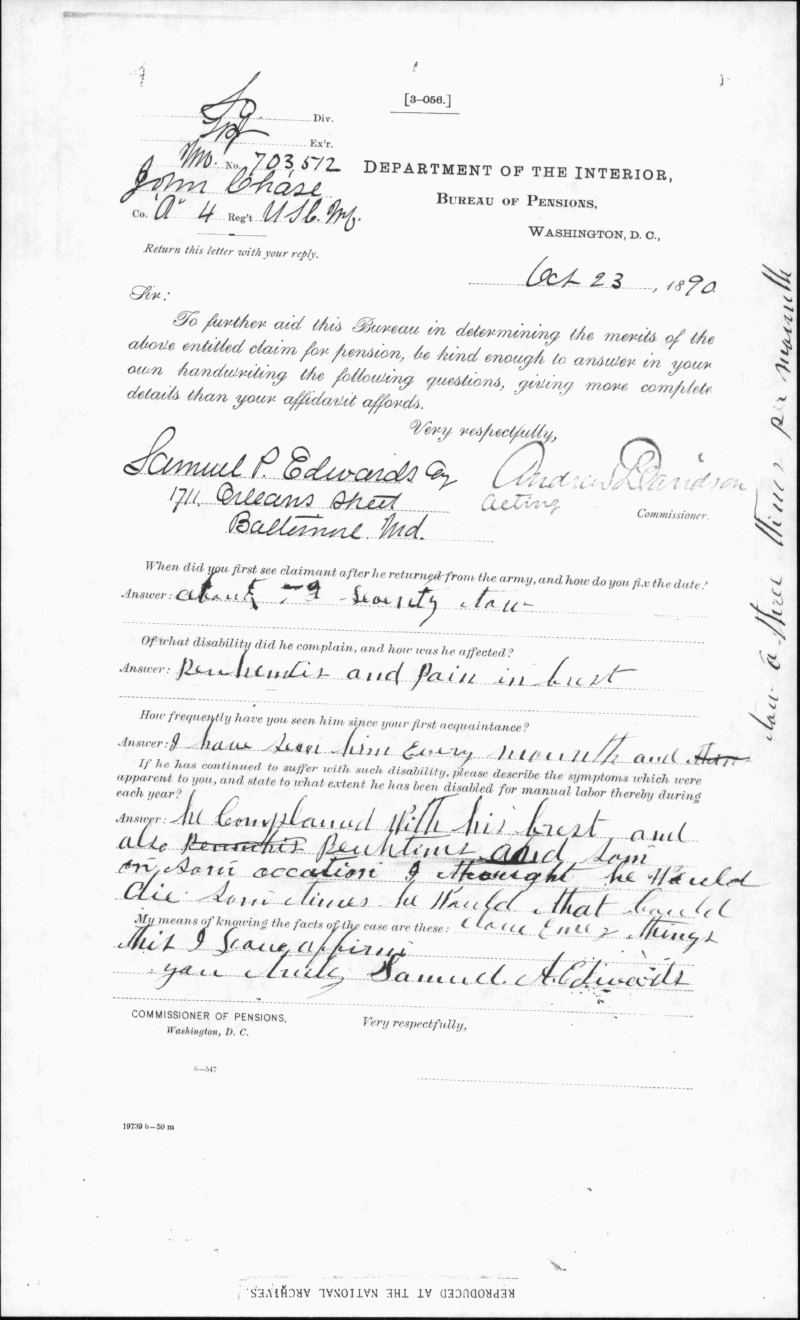 [3-056.]
Div.
Ex'r.
No. 703,512
John Chase
Co. "A" 4 Reg't U.S.C. Inf.
Return this letter with your reply.
DEPARTMENT OF THE INTERIOR,
BUREAU OF PENSIONS,
WASHINGTON, D. C.,
Oct 23, 1890.
Sir:
To further aid this Bureau in determining the merits of the
above entitled claim for pension, be kind enough to answer in your
own handwriting the following questions, giving more complete
details than your affidavit affords.
Very respectfully,
Samuel P. Edwards Esq
Andrew Davidson
1711 Orleans Street
Acting
Commissioner.
Baltimore Md.
When did you first see claimant after he returned from the army, and how do you fix the date?
Answer: about 79 Seventy
Of what disability did he complain, and how was he affected?
Answer: and Pain in brest
How frequently have you seen him since your first acquaintance?
Answer: I have seen him Every mounth and
three times per mounth
If he has continued to suffer with such disability, please describe the symptoms which were
apparent to you, and state to what extent he has been disabled for manual labor thereby during
each year?
Answer: he Complaned With his brest and
also and som
on som occation I thought he Would
die som times he Would
My means of knowing the facts of the case are these: things
this I
Samuel. A. Edwards
COMMISSIONER OF PENSIONS,
Washington, D. C.
Very respectfully,
6—547
19739 b—50 m
REPRODUCED AT THE NATIONAL ARCHIVES.